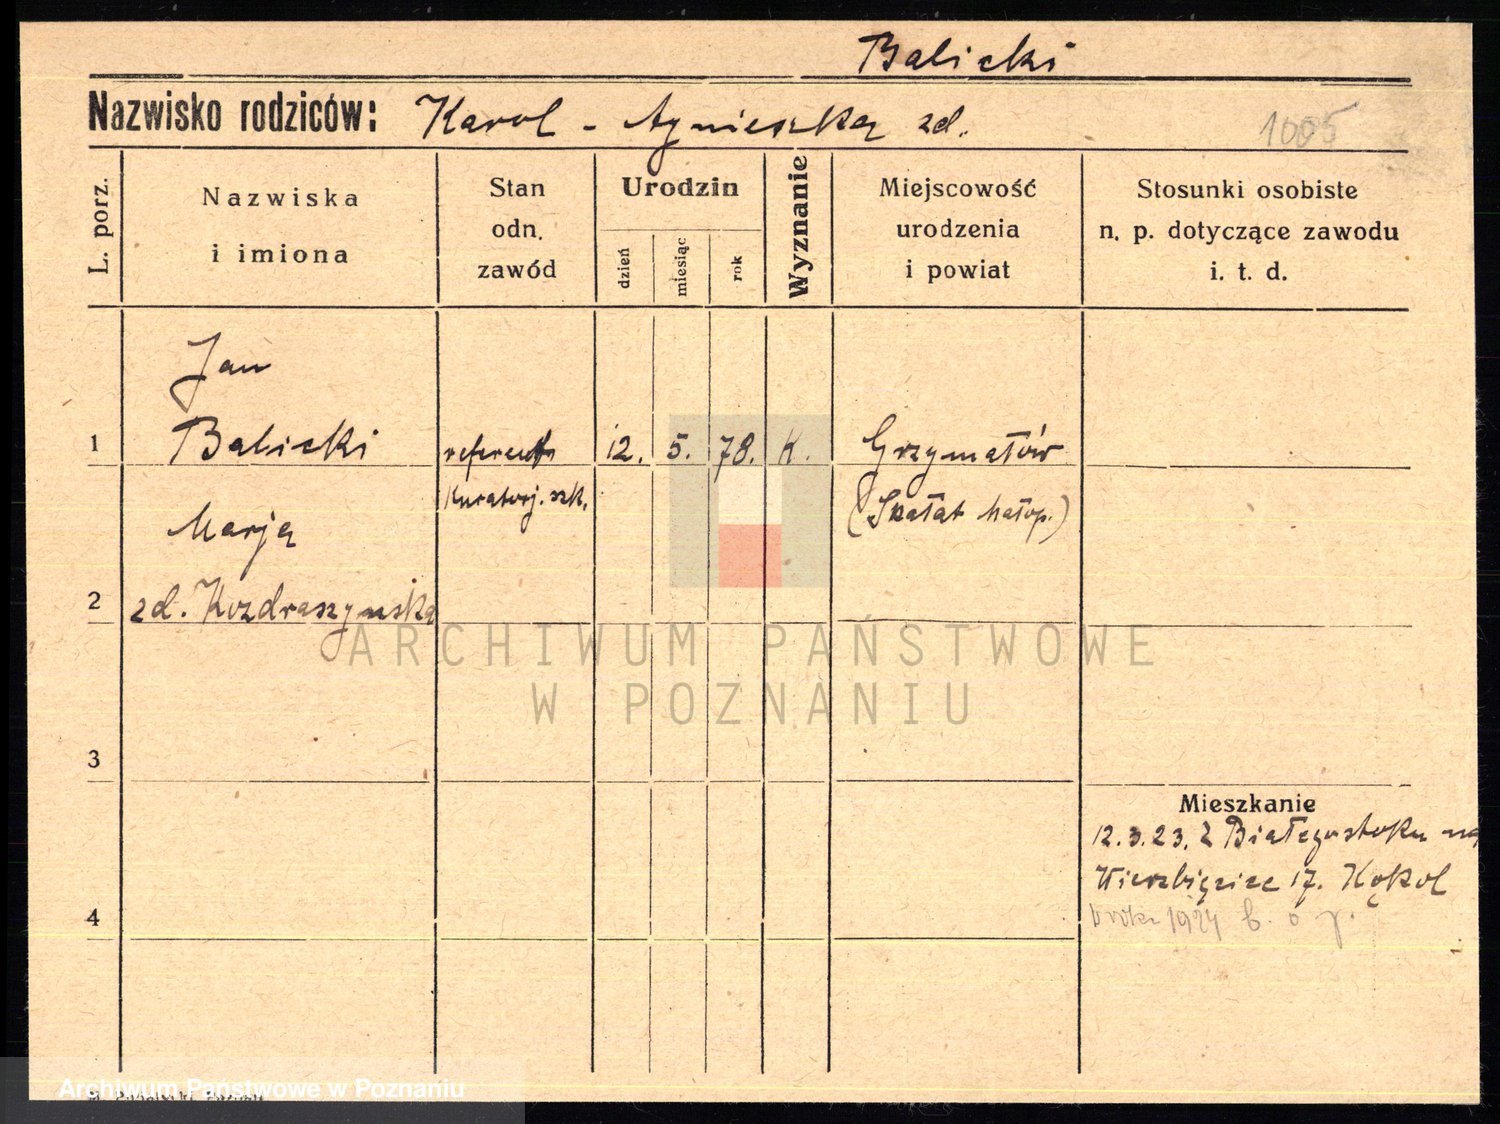 Balicki
Nazwisko rodziców: Karol - Agnieszka zd.
1005
L. porz.
Nazwiska
i imiona
Stan
odn.
zawód
Urodzin
dzień
miesiąc
rok
Wyznanie
Miejscowość
urodzenia
i powiat
Stosunki osobiste
n. p. dotyczące zawodu
i. t. d.
Jan
1 Balicki referent 12. 5. 78. K. Grzymałów
Kuratorj. szk. (Skałat Małop.)
Marja
2 zd. Kozdraszyńska
ARCHIWUM PAŃSTWOWE
W POZNANIU
3
Mieszkanie
12.3.23. z Białegostoku na
Wierzbięcice 17. Kąkol
4 1924
Archiwum Państwowe w Poznaniu